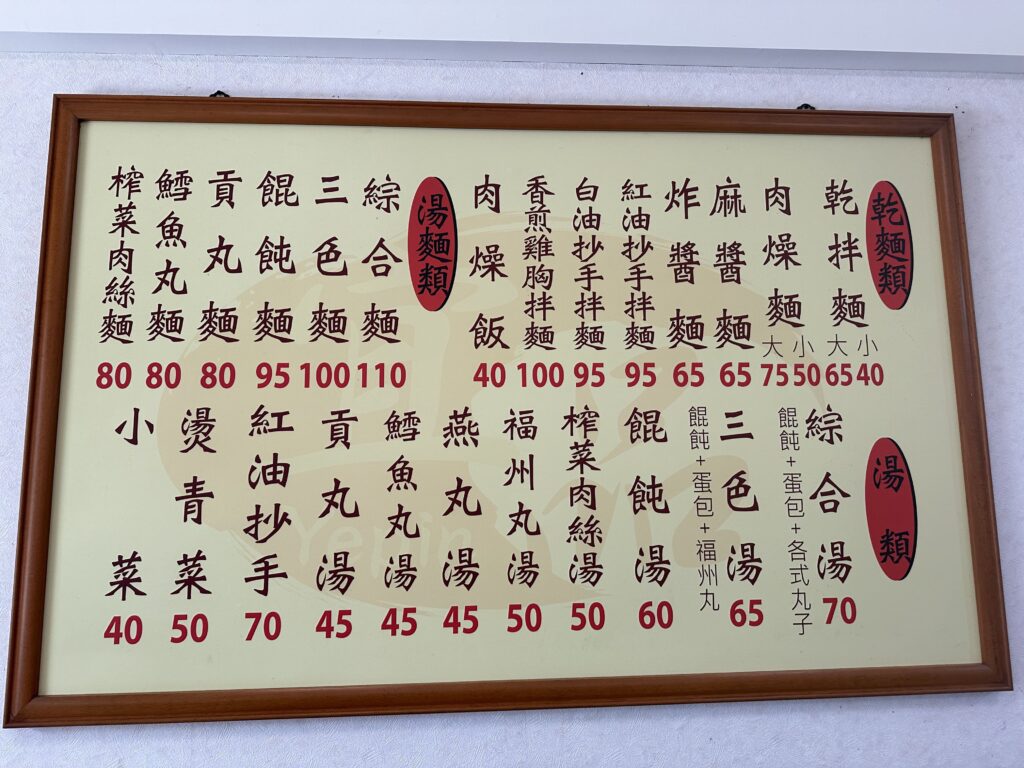 乾麵類
乾拌麵
大 小
65 40
肉燥麵
大 小
75 50
麻醬麵
65
炸醬麵
65
紅油抄手拌麵
95
白油抄手拌麵
95
香煎雞胸拌麵
100
肉燥飯
40
湯麵類
綜合麵
110
三色麵
100
餛飩麵
95
貢丸麵
80
鱈魚丸麵
80
榨菜肉絲麵
80
湯類
綜合湯
餛飩+蛋包+各式丸子
70
三色湯
餛飩+蛋包+福州丸
65
餛飩湯
60
榨菜肉絲湯
50
福州丸湯
50
燕丸湯
45
鱈魚丸湯
45
貢丸湯
45
紅油抄手
70
燙青菜
50
小菜
40